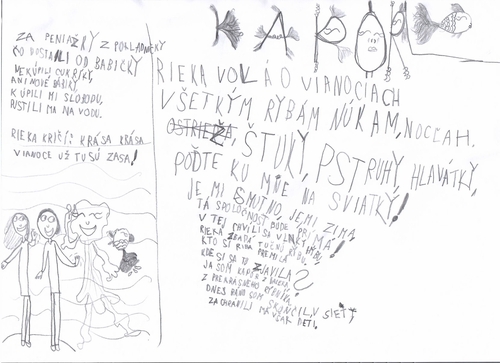 KAPOR
RIEKA VOLÁ O VIANOCIACH
VŠETKÝM RYBÁM NÚKAM, NOCĽAH.
OSTRIEŽA, ŠTUKY, PSTRUHY, HLAVÁTKY,
POĎTE KU MŇE NA SVIATKY!
JE MI SMUTNO, JE MI ZIMA,
TÁ SPOLOČNOSŤ BUDE PRÍMA!
V TEJ CHVÍLI SA VLNKY
RIEKA ZBADÁ TUČNÚ RYBU.
KTO SI RYBA PREMILÁ
KDE SI SA TO ZJAVILA?
JA SOM KAPOR Z
Z PREKRÁSNEHO RYBNÍKA
DNES RÁNO SOM SKONČIL, V SIETI
ZACHRÁNILI MA VŠAK DETI.
ZA PENIAŽKY Z POKLADNIČKY
ČO DOSTALI OD BABIČKY
NEKÚPILI CUKRÍKY,
ANI NOVÉ BÁBIKY,
KÚPILI MI SLOBODU,
PUSTILI MA NA VODU.
RIEKA KRIČÍ: KRÁSA KRÁSA
VIANOCE UŽ TU SÚ ZASA!